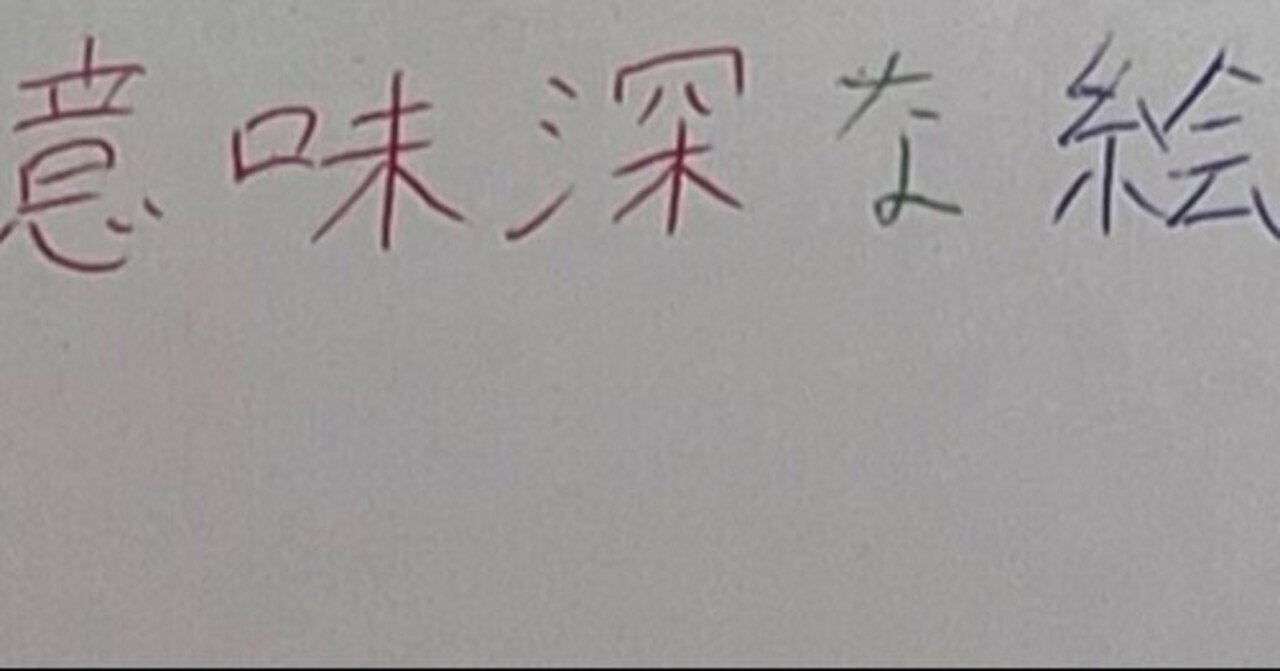 意味深な絵